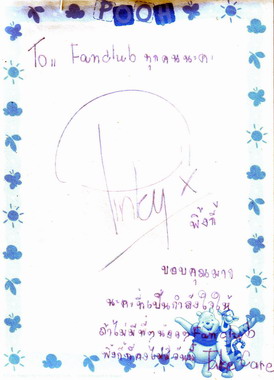 POOH
To.. Fanclub ทุกคนนะคะ
Pinky x
พิ้งกี้
ขอบคุณมาก
นะคะที่เป็นกำลังใจให้
ถ้าไม่มีพี่ๆน้องๆ Fanclub
พิ้งกี้ก็คงไม่มีวันนี้ Take Care